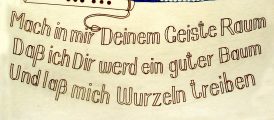 Mach in mir Deinem Geiste Raum
Daß ich Dir werd ein guter Baum
Und laß mich Wurzeln treiben